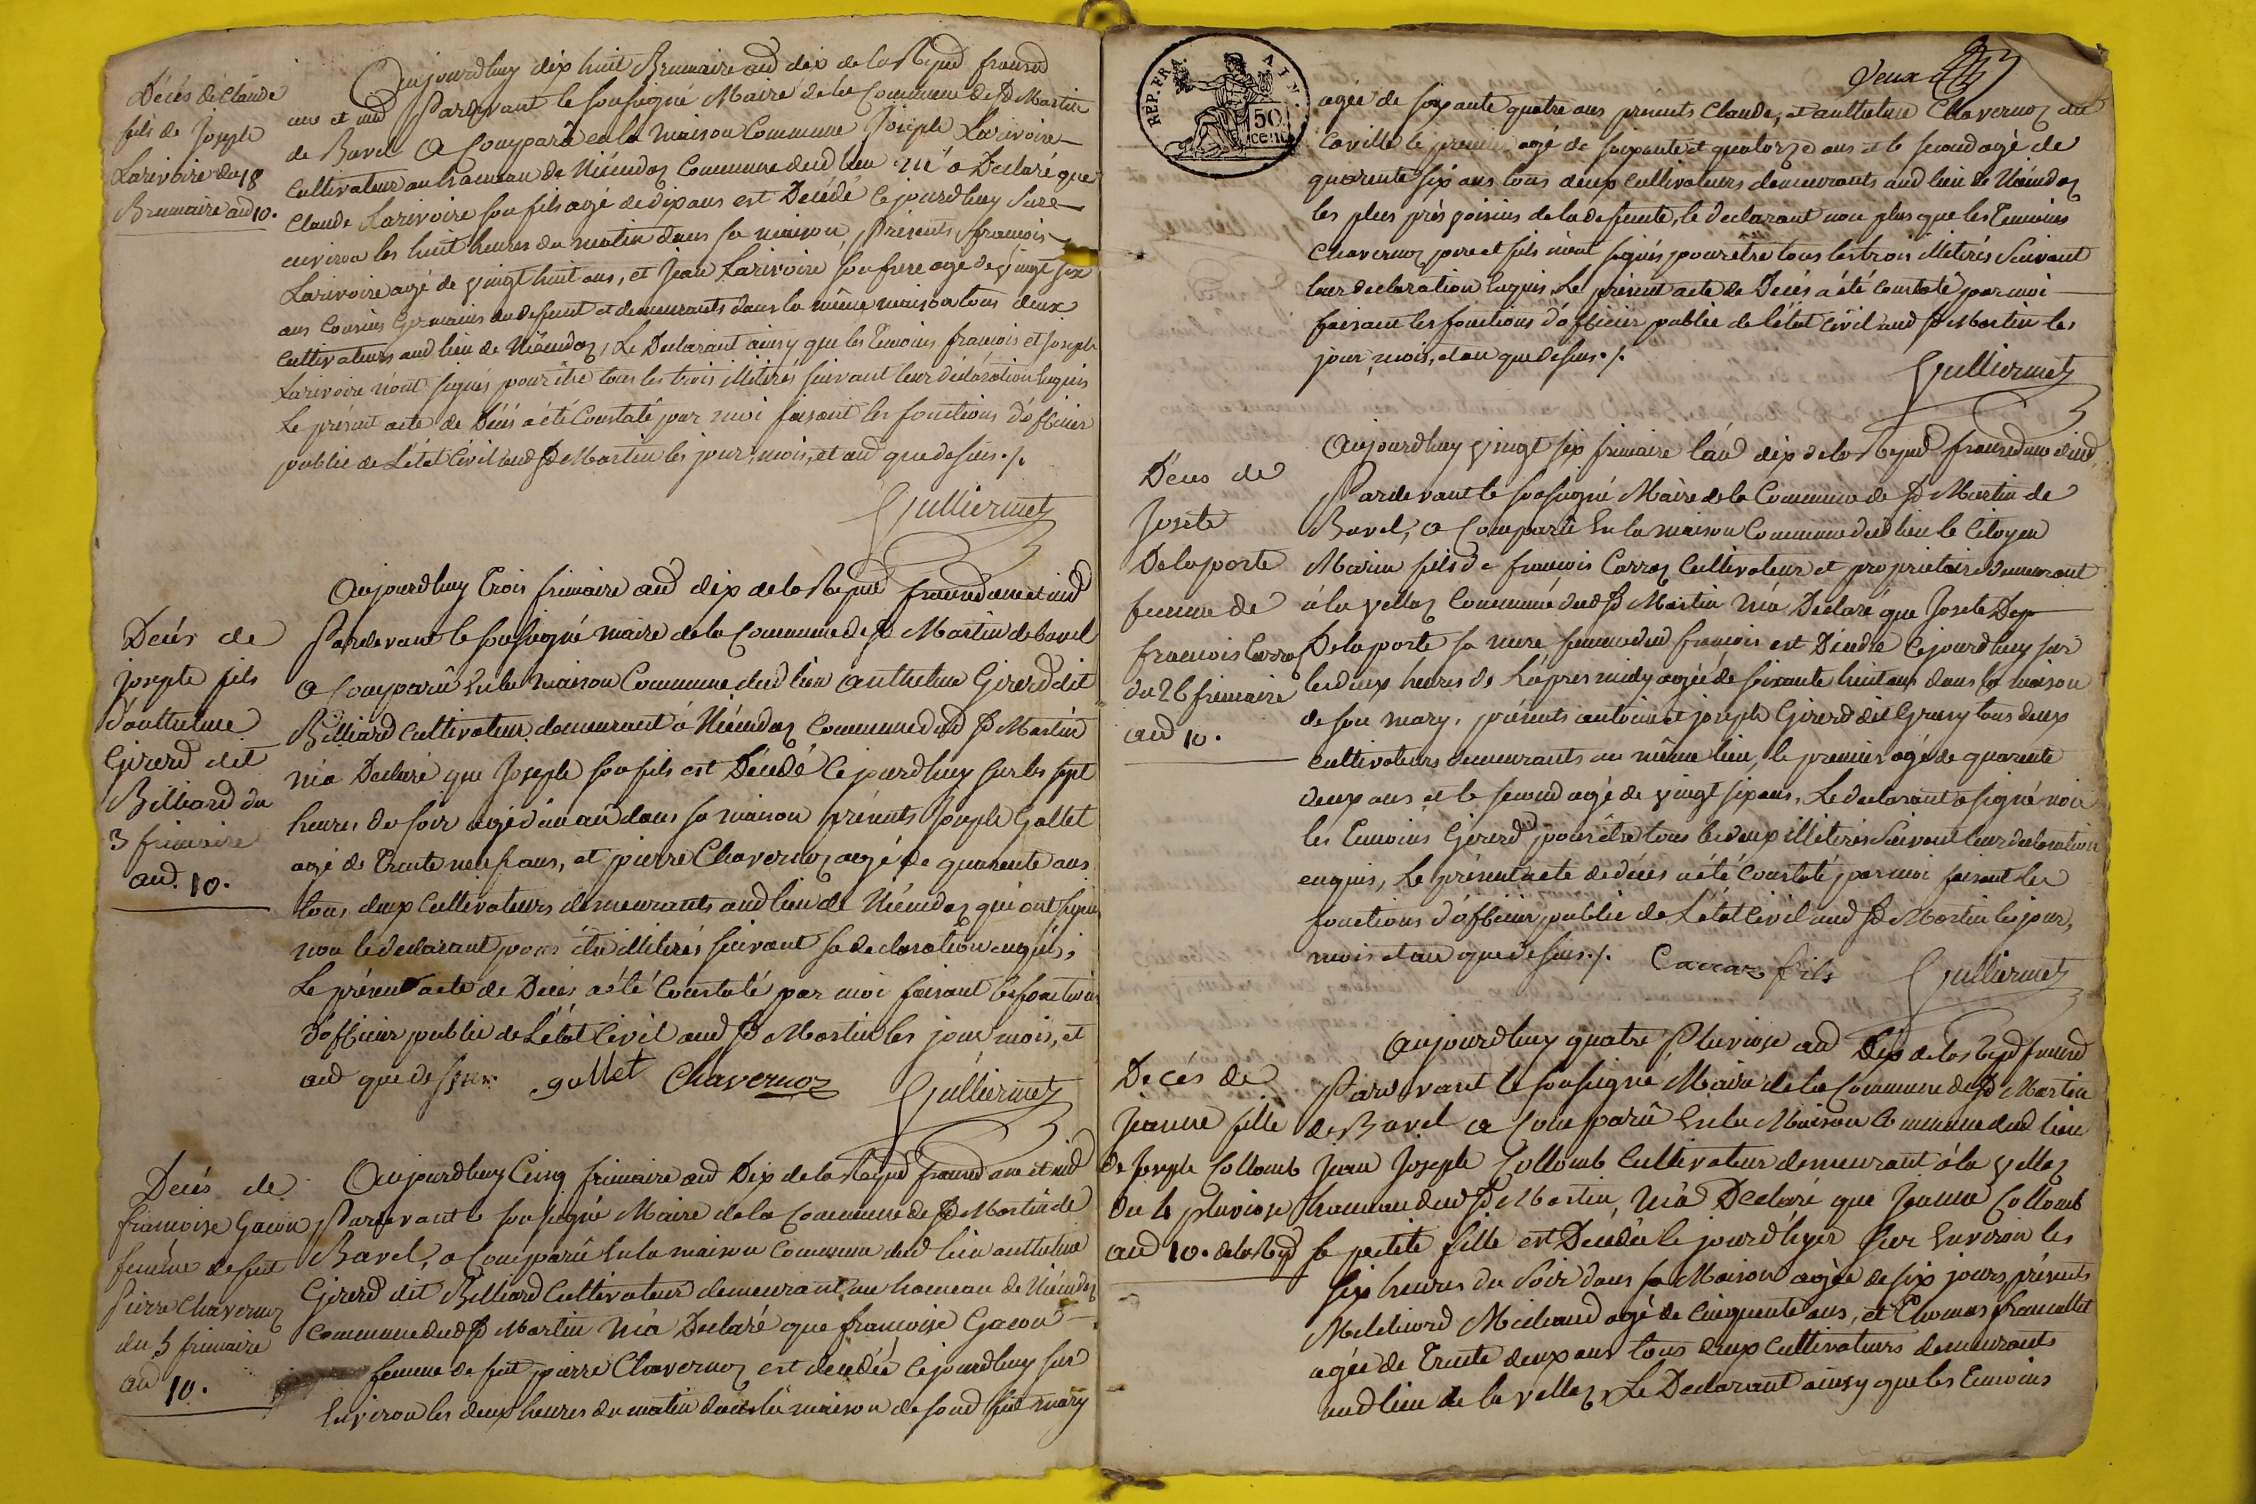 Décés de Claude
fils de Joseph
Larivoire du 18
Brumaire an 10.
Aujourd'huy dix huit Brumaire and dix de la Repud fransd
une et ind Pardevant le soussigné Maire de la Commune de St Martin
de Bavel A Comparû en la maison Commune Joseph Larivoire
Cultivateur au hameau de Commune dud lieu m'a Declaré que
Claude Larivoire son fils agé de dix ans est Décédé Cejourdhuy sur
environ les huit heures du matin dans sa maison, Présents francois
Larivoire agé de vingt huit ans, et Jean Larivoire son frere agé de vingt six
ans Cousins Germains du defunt et demeurants dans la même maison tous deux
Cultivateurs aud lieu de Le Declarant ainsy que les Temoins francois et Joseph
Larivoire n'ont signés pour être tous les trois illitérés suivant leur déclaration Enquis
Le présent acte de Décés a été Constaté par moi faisant les fonctions d'officier
public de L'état Civil aud St Martin les jour, mois, et and que dessus ./.
Gulliermet
Décés de
joseph fils
d'anthelme
Girerd dit
Billiard du
3 frimaire
and. 10.
Aujourdhuy Trois frimaire and dix de la Repud fransd une et ind
Pardevant le soussigné maire de la Commune de St Martin de bavel
a Comparû en la maison Commune dud lieu anthelme Girerd dit
Billiard Cultivateur demeurant à Commune dud St Martin
m'a Declaré que Joseph son fils est Décédé Cejourdhuy sur les sept
heures du soir agé d'un an dans sa maison présents Joseph Gollet
agé de Trente neuf ans, et pierre Chavernoz agé de quarente ans
tous deux Cultivateurs demeurants aud lieu de qui ont signés
non le declarant pour être illitérés suivant sa declaration enquis;
Le présent acte de Décés a été Constaté par moi faisant les fonctions
d'officier public de L'état Civil aud St Martin les jour mois, et
and que dessus gollet Chavernoz Gulliermet
Décés de
francoise Gacon
femme de feu
Pierre Chavernoz
du 5 frimaire
an 10.
Aujourdhuy Cinq frimaire and Dix de la Repud fransd une et ind
Pardevant le soussigné Maire de la Commune de St Martin de
Bavel, a Comparû en la maison Commune dud lieu anthelme
Girerd dit Billiard Cultivateur demeurant au hameau de
Commune dud St Martin m'a Declaré que francoise Gacon
femme de feu pierre Chavernoz est décédée Cejourdhuy sur
Environ les deux heures du matin dans la maison de sond feu mary
REP. FRA. AIN.
50
CENT.
Deux
agée de soixante quatre ans présents Claude, et anthelme Chavernoz du
Caville le premier agé de soixante et quatorze ans et le second agé de
quarente six ans tous deux Cultivateurs demeurants aud lieu de
les plus près voisins de la defunte, le declarant non plus que les Temoins
Chavernoz pere et fils n'ont signés pour être tous les trois illitérés Suivant
leur declaration Enquis Le présent acte de Décés a été Constaté par moi
faisant les fonctions d'officier public de l'état Civil aud St Martin les
jour, mois, et an que dessus ./.
Gulliermet
Décés de
Josete
Delaporte
femme de
francois Carraz
du 26 frimaire
and 10.
Aujourdhuy vingt six frimaire l'and dix de la Repud fransd une et ind,
Pardevant le soussigné Maire de la Commune de St Martin de
Bavel, a Comparû En la maison Commune dud lieu le Citoyen
Marin fils de francois Carraz Cultivateur et proprietaire demeurant
à la vellaz Commune dud St Martin M'a Declaré que Josete Dep
Delaporte sa mere femme dud francois est Décédée Cejourdhuy sur
les deux heures de L'apres midy agée de soixante huit ans dans la maison
de son mary, présents antoine et joseph Girerd dit tous deux
Cultivateurs demeurants au même lieu, le premier agé de quarente
deux ans et le second agé de vingt six ans, Le declarant a signé non
les Temoins Girerd pour être tous les deux illitérés Suivant leur declaration
enquis, Le présent acte de décés a été Constaté par moi faisant les
fonctions d'officier public de L'état Civil aud St Martin les jour,
mois et an que dessus ./. Carraz fils Gulliermet
Décés de
jeanne fille
de Joseph Collomb
du 4 pluviose
and 10. de la Repd
Aujourdhuy quatre Pluviose and Dix de la Repud fransd
Pardevant le soussigné Maire de la Commune de St Martin
de Bavel a Comparû En la Maison Commune dud lieu
Jean Joseph Collomb Cultivateur demeurant à la vellaz
hameau dud St Martin, m'a Declaré que Jeanne Collomb
sa petite fille est Décédée le jour d'hyer sur Environ les
six heures du Soir dans sa Maison agée de six jours, présents
Michaud agé de Cinquente ans, et Thomas
agée de Trente deux ans tous deux Cultivateurs demeurants
aud lieu de la vellaz, Le Declarant ainsy que les Temoins